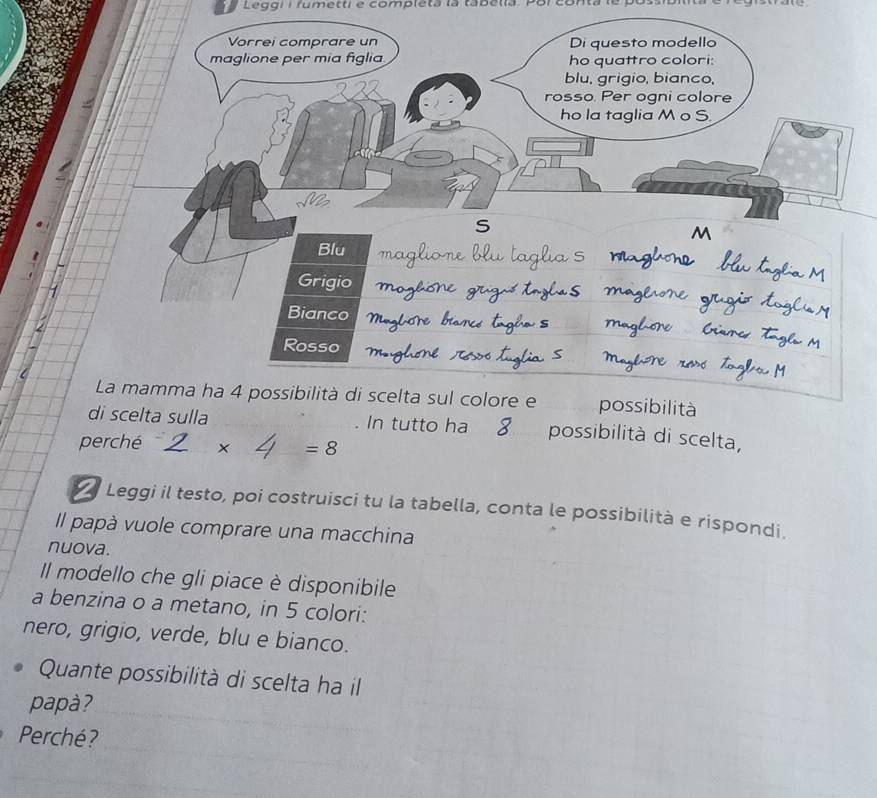 1 Leggi i fumetti e completa la tabella. Poi conta le possibilità e registrale.
Vorrei comprare un
maglione per mia figlia.
Di questo modello
ho quattro colori:
blu, grigio, bianco,
rosso. Per ogni colore
ho la taglia M o S.
S M
Blu maglione blu taglia S maglione blu taglia M
Grigio maglione grigio taglia S maglione grigio taglia M
Bianco maglione bianco taglia S maglione bianco taglia M
Rosso maglione rosso taglia S maglione rosso taglia M
La mamma ha 4 possibilità di scelta sul colore e ____ possibilità
di scelta sulla ____. In tutto ha 8 possibilità di scelta,
perché 2 × 4 = 8
2 Leggi il testo, poi costruisci tu la tabella, conta le possibilità e rispondi.
Il papà vuole comprare una macchina
nuova.
Il modello che gli piace è disponibile
a benzina o a metano, in 5 colori:
nero, grigio, verde, blu e bianco.
• Quante possibilità di scelta ha il
papà?
• Perché?